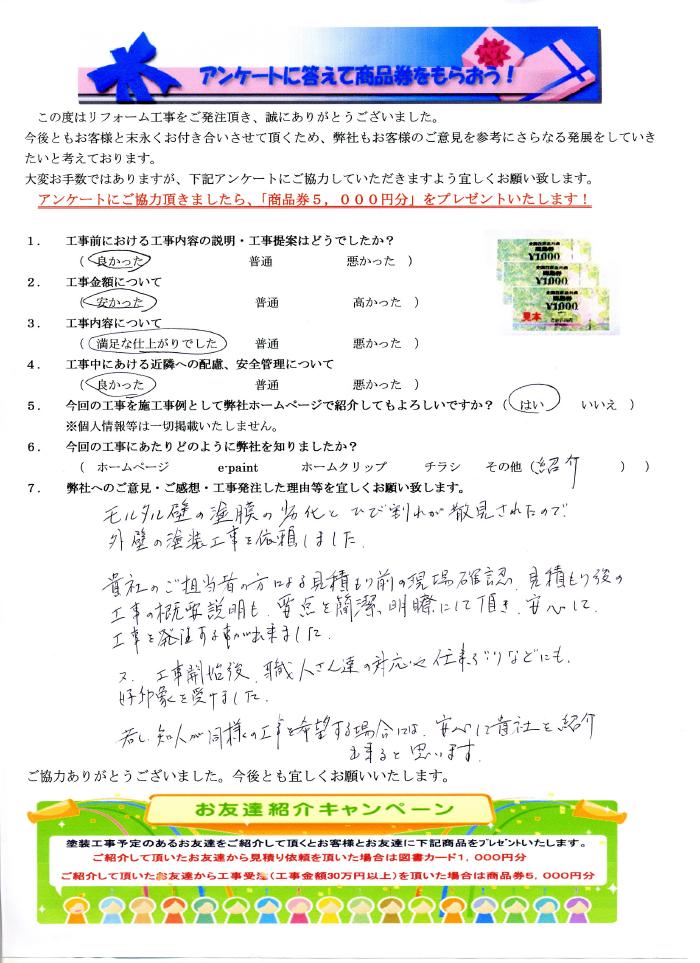 アンケートに答えて商品券をもらおう！
この度はリフォーム工事をご発注頂き、誠にありがとうございました。
今後ともお客様と末永くお付き合いさせて頂くため、弊社もお客様のご意見を参考にさらなる発展をしていき
たいと考えております。
大変お手数ではありますが、下記アンケートにご協力していただきますよう宜しくお願い致します。
アンケートにご協力頂きましたら、「商品券５，０００円分」をプレゼントいたします！
１． 工事前における工事内容の説明・工事提案はどうでしたか？
（ 良かった 普通 悪かった ）
２． 工事金額について
（ 安かった 普通 高かった ）
３． 工事内容について
（ 満足な仕上がりでした 普通 悪かった ）
４． 工事中にあける近隣への配慮、安全管理について
（ 良かった 普通 悪かった ）
５． 今回の工事を施工事例として弊社ホームページで紹介してもよろしいですか？（ はい いいえ ）
※個人情報等は一切掲載いたしません。
６． 今回の工事にあたりどのように弊社を知りましたか？
（ ホームページ e-paint ホームクリップ チラシ その他（紹介 ） ）
７． 弊社へのご意見・ご感想・工事発注した理由等を宜しくお願い致します。
モルタル壁の塗膜の劣化とひび割れが散見されたので
外壁の塗装工事を依頼しました.
貴社のご担当者の方による見積もり前の現場確認、見積もり後の
工事の概要説明も、要点を簡潔、明瞭にして頂き、安心して、
工事を発注する事が出来ました.
又、工事開始後、職人さん達の対応や仕事ぶりなどにも、
好印象を受けました.
若し、知人が同様の工事を希望する場合には、安心して貴社を紹介
出来ると思います.
ご協力ありがとうございました。今後とも宜しくお願いいたします。
お友達紹介キャンペーン
塗装工事予定のあるお友達をご紹介して頂くとお客様とお友達に下記商品をプレゼントいたします。
ご紹介して頂いたお友達から見積り依頼を頂いた場合は図書カード１，０００円分
ご紹介して頂いたお友達から工事受注（工事金額30万円以上）を頂いた場合は商品券５，０００円分
商品券
¥1,000
商品券
¥1,000
商品券
¥1,000
見本